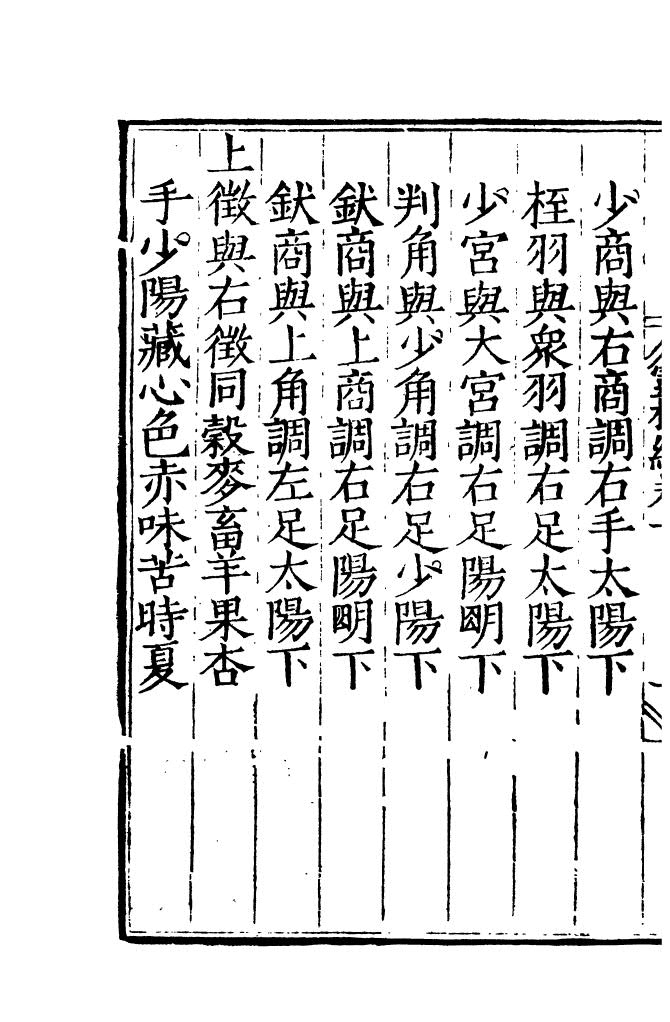 少商與右商調右手太陽下
桎羽與衆羽調右足太陽下
少宮與大宮調右足陽明下
判角與少角調右足少陽下
釱商與上商調右足陽明下
釱商與上角調左足太陽下
上徵與右徵同穀麥畜羊果杏
手少陽藏心色赤味苦時夏